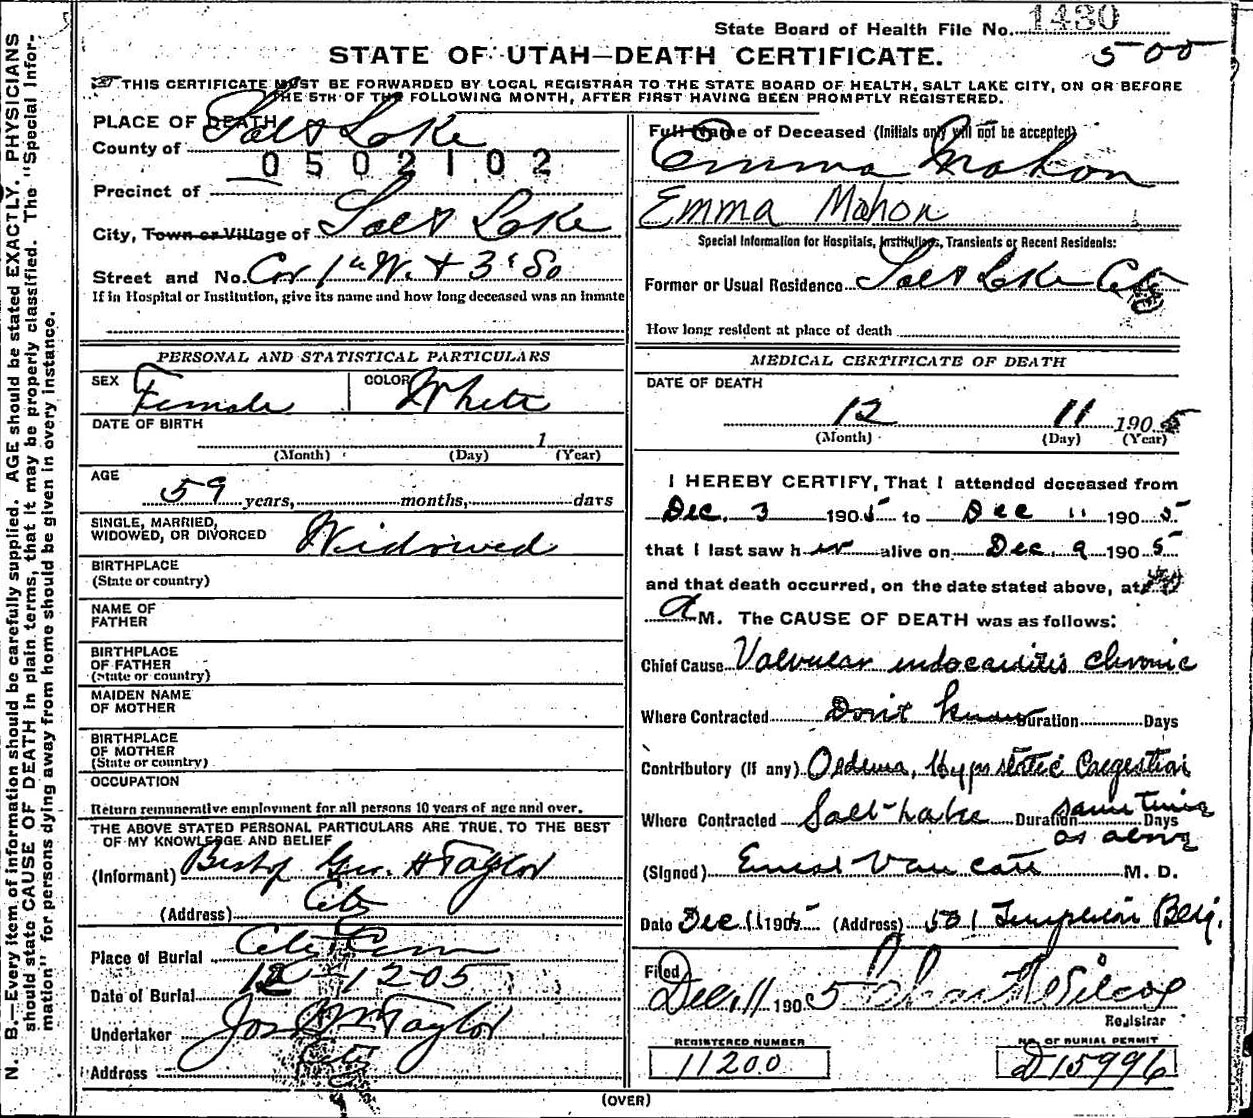 State Board of Health File No. 1430
STATE OF UTAH—DEATH CERTIFICATE.
500
THIS CERTIFICATE MUST BE FORWARDED BY LOCAL REGISTRAR TO THE STATE BOARD OF HEALTH, SALT LAKE CITY, ON OR BEFORE
THE 5TH OF THE FOLLOWING MONTH, AFTER FIRST HAVING BEEN PROMPTLY REGISTERED.
N. B.—Every item of information should be carefully supplied. AGE should be stated EXACTLY. PHYSICIANS
should state CAUSE OF DEATH in plain terms, that it may be properly classified. The "Special Infor-
mation" for persons dying away from home should be given in every instance.
PLACE OF DEATH
County of Salt Lake
0502102
Precinct of
City, Town or Village of Salt Lake
Street and No. Cor 1st W. + 3d So
If in Hospital or Institution, give its name and how long deceased was an inmate
PERSONAL AND STATISTICAL PARTICULARS
SEX Female COLOR White
DATE OF BIRTH
1
(Month) (Day) (Year)
AGE
59 years, months, days
SINGLE, MARRIED,
WIDOWED, OR DIVORCED Widowed
BIRTHPLACE
(State or country)
NAME OF
FATHER
BIRTHPLACE
OF FATHER
(State or country)
MAIDEN NAME
OF MOTHER
BIRTHPLACE
OF MOTHER
(State or country)
OCCUPATION
Return remunerative employment for all persons 10 years of age and over.
THE ABOVE STATED PERSONAL PARTICULARS ARE TRUE TO THE BEST
OF MY KNOWLEDGE AND BELIEF
(Informant) Bishop Geo. H Taylor
(Address) City
Place of Burial City Cem
Date of Burial 12-12-05
Undertaker Jos Wm Taylor
Address City
Full Name of Deceased (Initials only will not be accepted)
Emma Mahon
Emma Mahon
Special Information for Hospitals, Institutions, Transients or Recent Residents:
Former or Usual Residence Salt Lake City
How long resident at place of death
MEDICAL CERTIFICATE OF DEATH
DATE OF DEATH
12 11 1905
(Month) (Day) (Year)
I HEREBY CERTIFY, That I attended deceased from
Dec. 3 1905 to Dec 11 1905
that I last saw her alive on Dec. 9 1905
and that death occurred, on the date stated above, at
a M. The CAUSE OF DEATH was as follows:
Chief Cause Valvular endocarditis chronic
Where Contracted Don't know Duration Days
Contributory (If any) Oedema, Hypostatic Congestion
Where Contracted Salt-Lake Duration same time Days
as above
(Signed) Ernest Van Cott M. D.
Date Dec 11 1905 (Address) 501 Templeton Bldg.
Filed
Dec. 11 1905 Chas Wilcox
Registrar
REGISTERED NUMBER
11200
NO. OF BURIAL PERMIT
D15996
(OVER)